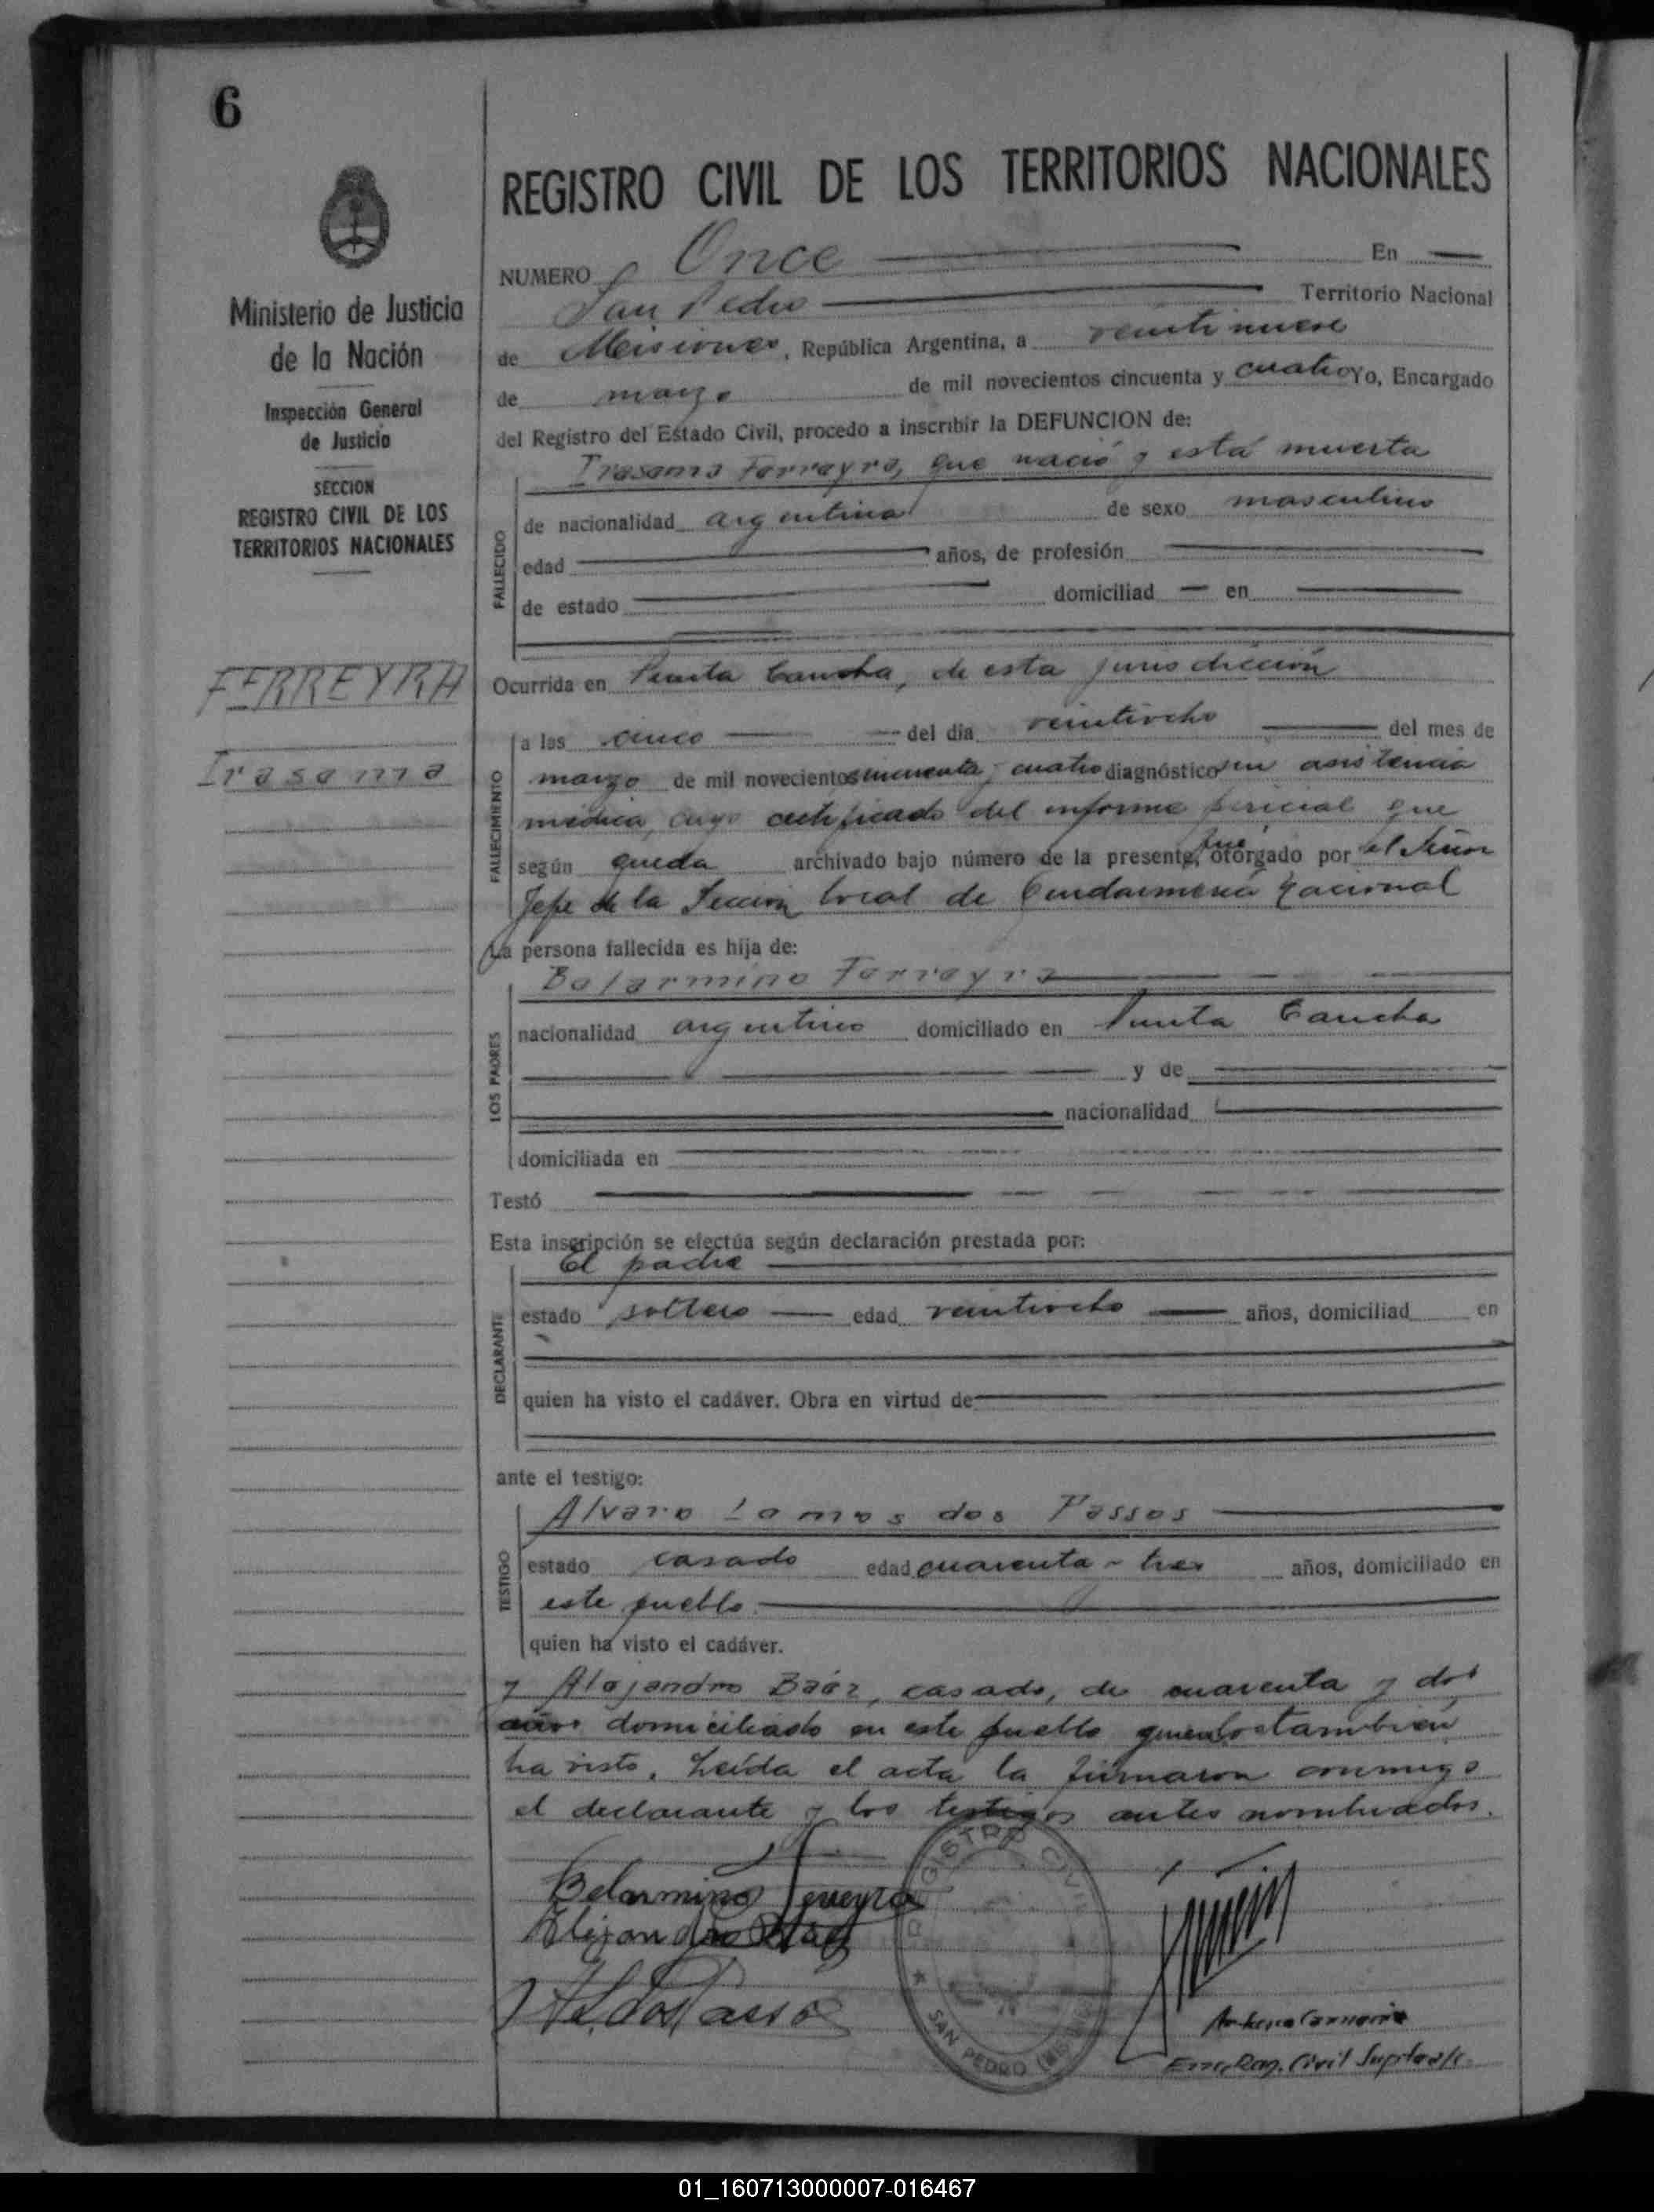 6
REGISTRO CIVIL DE LOS TERRITORIOS NACIONALES
Ministerio de Justicia
de la Nación
Inspección General
de Justicia
SECCION
REGISTRO CIVIL DE LOS
TERRITORIOS NACIONALES
FERREYRA
Irasema
NUMERO Once En
San Pedro Territorio Nacional
de Misiones, República Argentina, a veinti nueve
de marzo de mil novecientos cincuenta y cuatro Yo, Encargado
del Registro del Estado Civil, procedo a inscribir la DEFUNCION de:
Irasema Ferreyra, que nació y está muerta
FALLECIDO
de nacionalidad argentina de sexo masculino
edad años, de profesión
de estado domiciliad en
Ocurrida en Punta Cancha, de esta jurisdicción
FALLECIMIENTO
a las cinco del día veintiocho del mes de
marzo de mil novecientos cincuenta y cuatro diagnóstico sin asistencia
médica, cuyo certificado del informe pericial que
según queda archivado bajo número de la presente, fué otorgado por el Señor
Jefe de la Sección local de Gendarmería Nacional
La persona fallecida es hija de:
LOS PADRES
Belarmino Ferreyra
nacionalidad argentino domiciliado en Punta Cancha
y de
nacionalidad
domiciliada en
Testó
Esta inscripción se efectúa según declaración prestada por:
DECLARANTE
El padre
estado soltero edad veintiocho años, domiciliad en
quien ha visto el cadáver. Obra en virtud de
ante el testigo:
TESTIGO
Alvaro Lemos dos Passos
estado casado edad cuarenta y tres años, domiciliado en
este pueblo.
quien ha visto el cadáver.
y Alejandro Báez, casado, de cuarenta y dos
años domiciliado en este pueblo quien lo también
ha visto. Leída el acta la firmaron conmigo
el declarante y los testigos antes nombrados.
Belarmino Ferreyra
Alejandro Báez
dos Passos
REGISTRO CIVIL
SAN PEDRO (MISIONES)
Enc. Reg. Civil
01_160713000007-016467